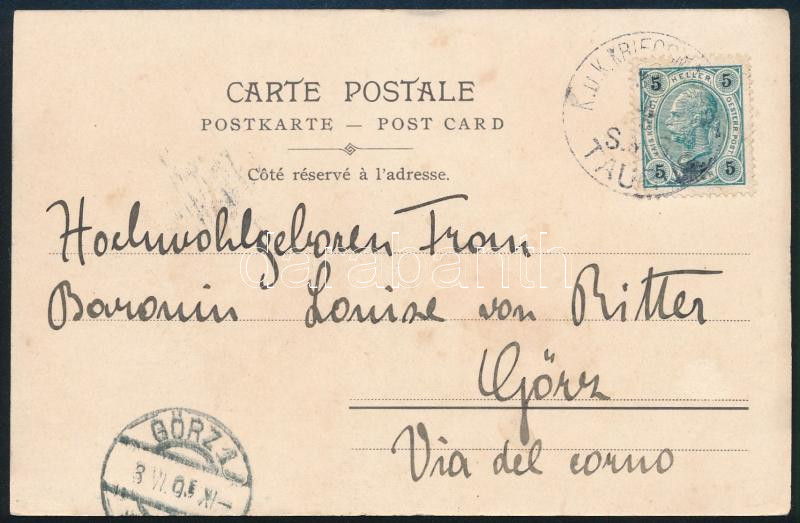 CARTE POSTALE
POSTKARTE — POST CARD
Côté réservé à l'adresse.
K.u.K. KRIEGS
S.
TAU
5 HELLER 5
KAIS. KOENIGL.
OESTERR. POST
5 5
Hochwohlgeboren Frau
darabanth
Baronin Louise von Ritter
Görz
Via del corno
GÖRZ 1
8 VI 05 XI—